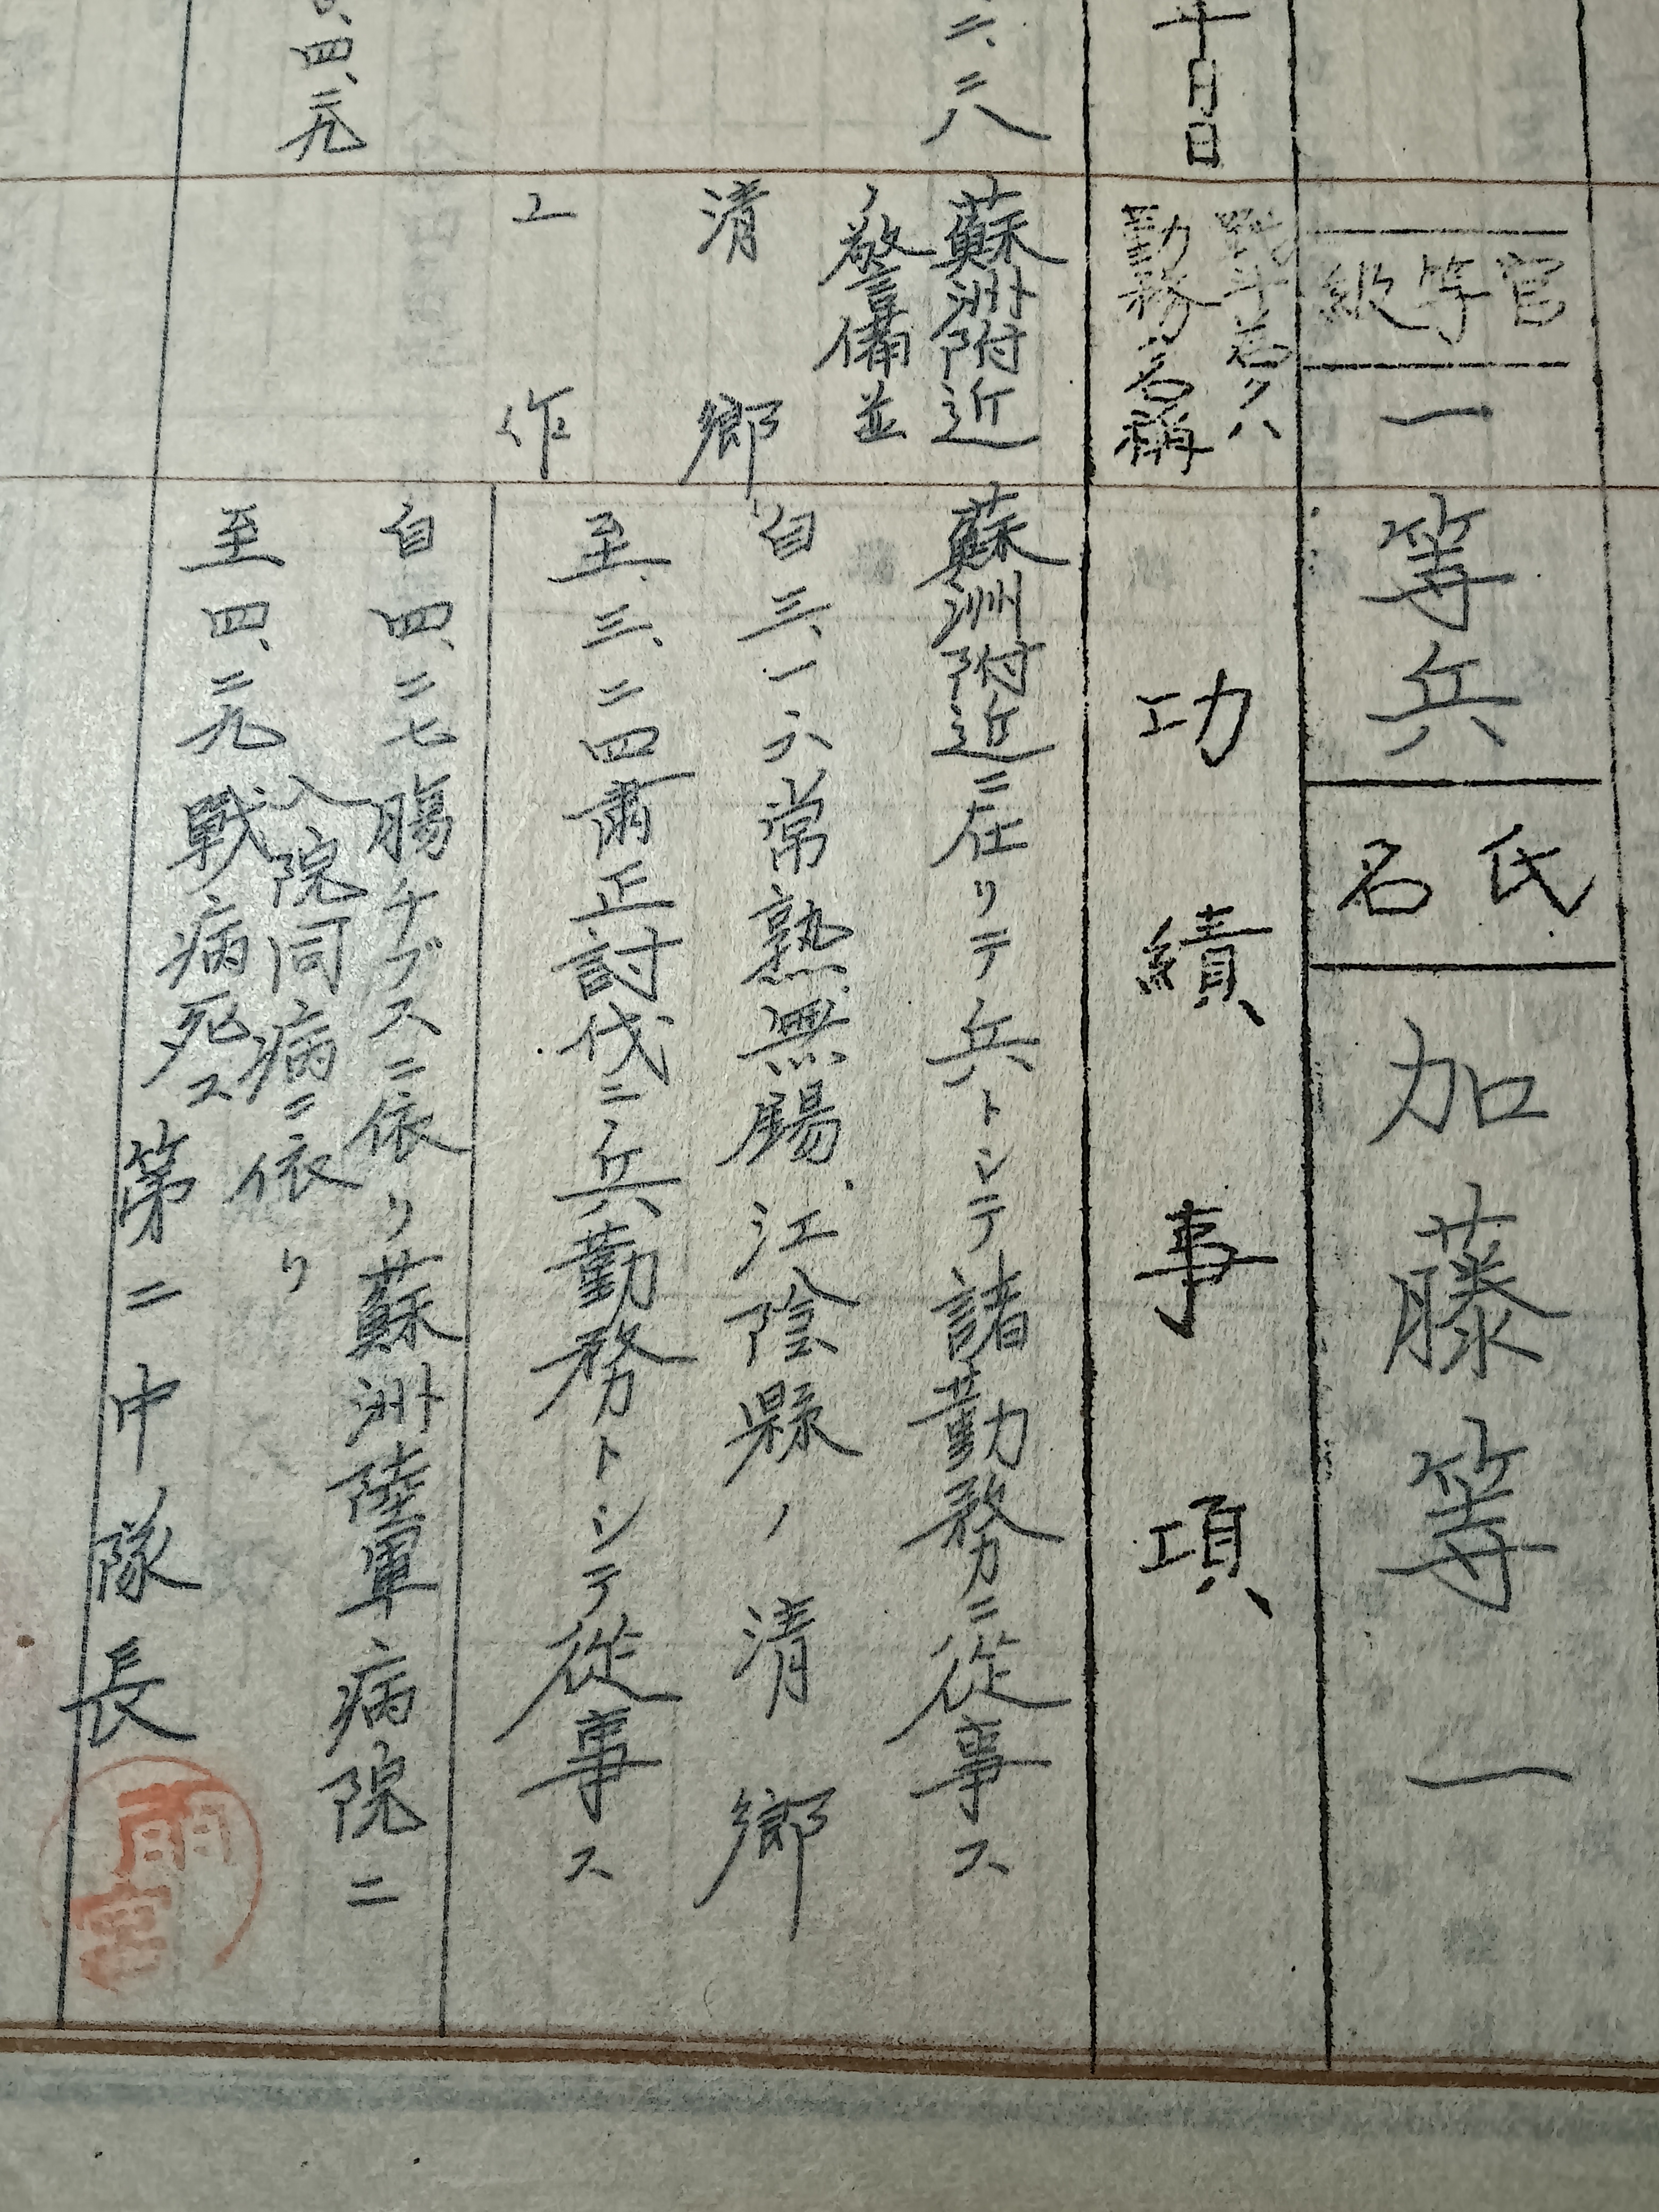 官等級
一等兵
氏名
加藤等一
年月日
戦斗若クハ
勤務名稱
功績事項
二、二八
蘇洲附近
警備並
清郷
工作
蘇洲附近ニ在リテ兵トシテ諸勤務ニ從事ス
自三、一六常熟無賜、江陰縣ノ清郷
至三、二四肅正討伐ニ兵勤務トシテ從事ス
四、二九
自四、二七腸チブスニ依リ蘇洲陸軍病院ニ
入院同病ニ依リ
至四、二九戰病死ス
第二中隊長